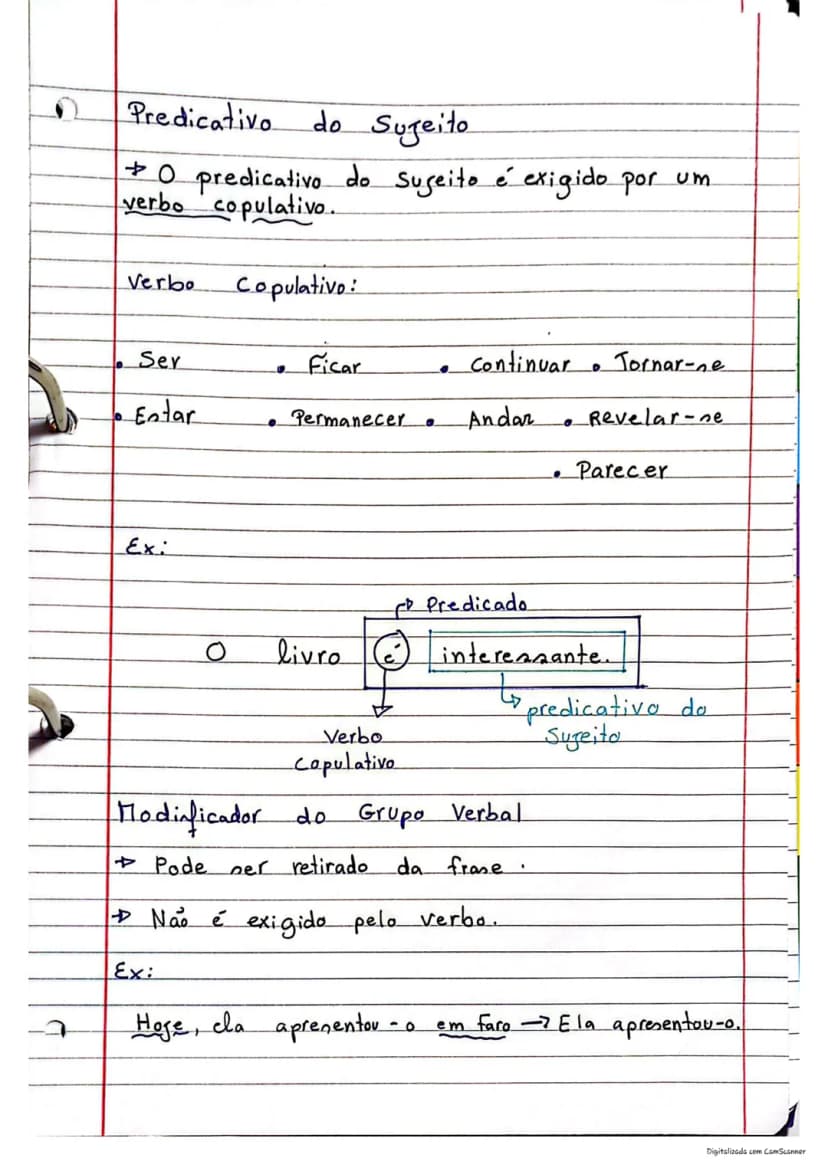 Predicativo do Sujeito
→ O predicativo do sujeito é exigido por um
verbo copulativo.
Verbo Copulativo:
• Ser • Ficar • Continuar • Tornar-se
• Estar • Permanecer • Andar • Revelar-se
• Parecer
Ex:
→ Predicado
O livro é interessante.
→ predicativo do
Sujeito
Verbo
Copulativo
Modificador do Grupo Verbal
→ Pode ser retirado da frase.
→ Não é exigido pelo verbo.
Ex:
Hoje, ela apresentou-o em Faro → Ela apresentou-o.
Digitalizada com CamScanner